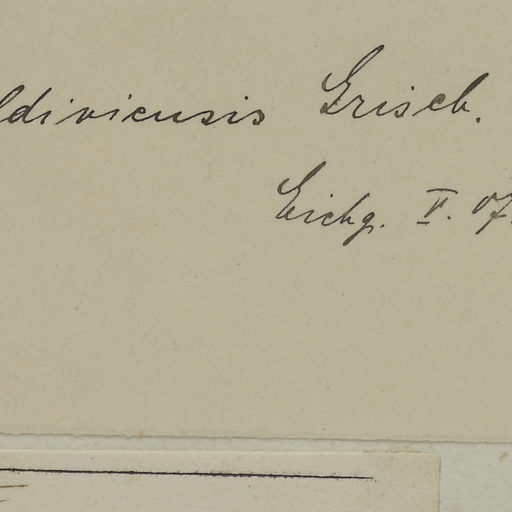 ldiviensis Griseb.
Eichg. V. 07.